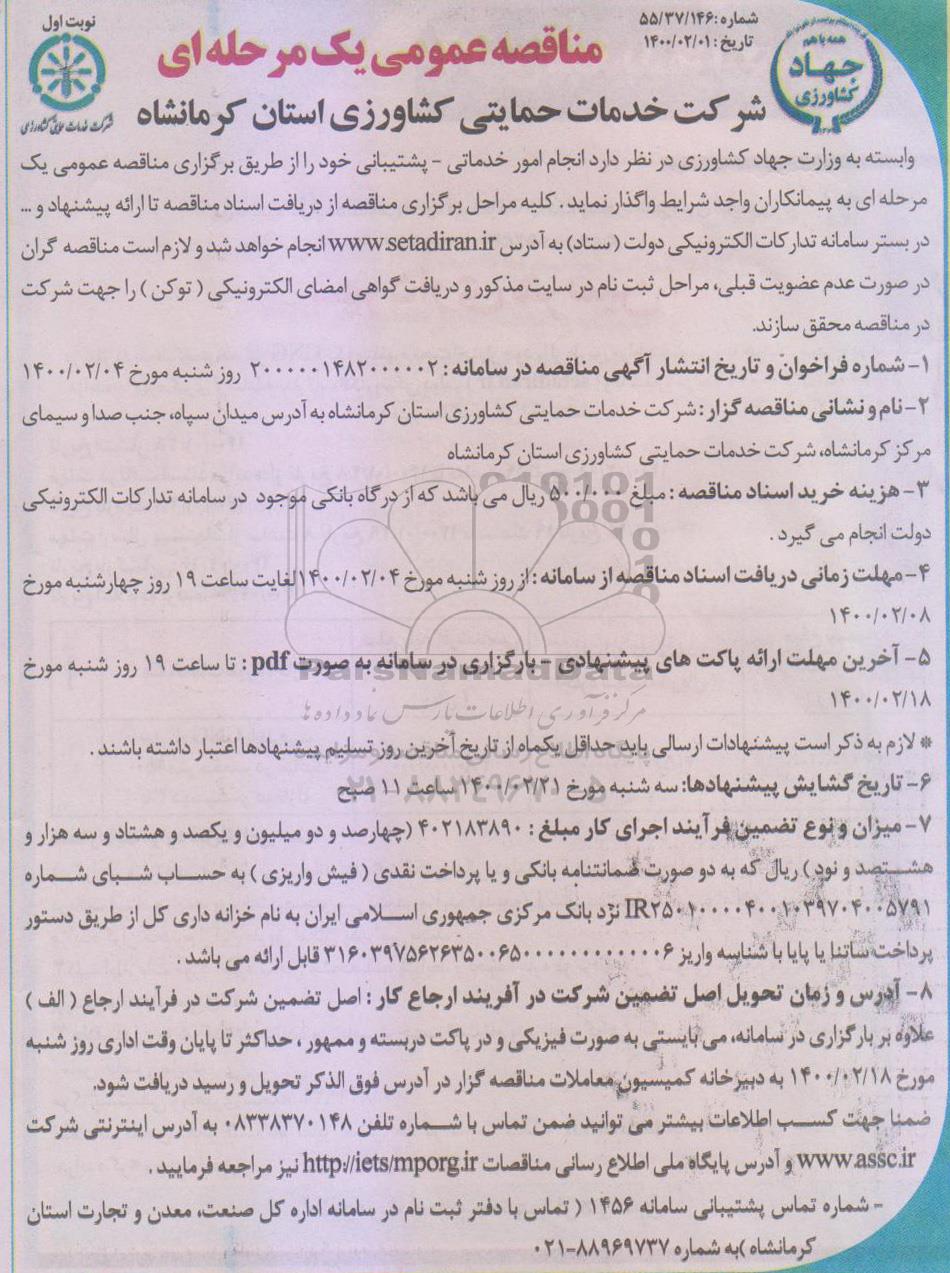 نوبت اول
شماره: ۵۵/۳۷/۱۴۶
تاریخ: ۱۴۰۰/۰۲/۰۱
همه با هم
جهاد
کشاورزی
شرکت خدمات حمایتی کشاورزی
مناقصه عمومی یک مرحله ای
شرکت خدمات حمایتی کشاورزی استان کرمانشاه
وابسته به وزارت جهاد کشاورزی در نظر دارد انجام امور خدماتی - پشتیبانی خود را از طریق برگزاری مناقصه عمومی یک
مرحله ای به پیمانکاران واجد شرایط واگذار نماید. کلیه مراحل برگزاری مناقصه از دریافت اسناد مناقصه تا ارائه پیشنهاد و ...
در بستر سامانه تدارکات الکترونیکی دولت (ستاد) به آدرس www.setadiran.ir انجام خواهد شد و لازم است مناقصه گران
در صورت عدم عضویت قبلی، مراحل ثبت نام در سایت مذکور و دریافت گواهی امضای الکترونیکی (توکن) را جهت شرکت
در مناقصه محقق سازند.
۱- شماره فراخوان و تاریخ انتشار آگهی مناقصه در سامانه: ۲۰۰۰۰۰۱۴۸۲۰۰۰۰۰۲ روز شنبه مورخ ۱۴۰۰/۰۲/۰۴
۲- نام و نشانی مناقصه گزار: شرکت خدمات حمایتی کشاورزی استان کرمانشاه به آدرس میدان سپاه، جنب صدا و سیمای
مرکز کرمانشاه، شرکت خدمات حمایتی کشاورزی استان کرمانشاه
۳- هزینه خرید اسناد مناقصه: مبلغ ۵۰۰/۰۰۰ ریال می باشد که از درگاه بانکی موجود در سامانه تدارکات الکترونیکی
دولت انجام می گیرد.
۴- مهلت زمانی دریافت اسناد مناقصه از سامانه: از روز شنبه مورخ ۱۴۰۰/۰۲/۰۴ لغایت ساعت ۱۹ روز چهارشنبه مورخ
۱۴۰۰/۰۲/۰۸
۵- آخرین مهلت ارائه پاکت های پیشنهادی - بارگزاری در سامانه به صورت pdf: تا ساعت ۱۹ روز شنبه مورخ
۱۴۰۰/۰۲/۱۸
ParsNamadData
مرکز فرآوری اطلاعات پارس نماد داده ها
* لازم به ذکر است پیشنهادات ارسالی باید حداقل یکماه از تاریخ آخرین روز تسلیم پیشنهادها اعتبار داشته باشند.
۶- تاریخ گشایش پیشنهادها: سه شنبه مورخ ۱۴۰۰/۰۲/۲۱ ساعت ۱۱ صبح
۷- میزان و نوع تضمین فرآیند اجرای کار مبلغ: ۴۰۲۱۸۳۸۹۰ (چهارصد و دو میلیون و یکصد و هشتاد و سه هزار و
هشتصد و نود) ریال که به دو صورت ضمانتنامه بانکی و یا پرداخت نقدی (فیش واریزی) به حساب شبای شماره
IR۲۵۰۱۰۰۰۰۴۰۰۱۰۳۹۷۰۴۰۰۵۷۹۱ نزد بانک مرکزی جمهوری اسلامی ایران به نام خزانه داری کل از طریق دستور
پرداخت ساتنا یا پایا با شناسه واریز قابل ارائه می باشد.
۸- آدرس و زمان تحویل اصل تضمین شرکت در آفریند ارجاع کار: اصل تضمین شرکت در فرآیند ارجاع (الف)
علاوه بر بارگزاری در سامانه، می بایستی به صورت فیزیکی و در پاکت دربسته و ممهور، حداکثر تا پایان وقت اداری روز شنبه
مورخ ۱۴۰۰/۰۲/۱۸ به دبیرخانه کمیسیون معاملات مناقصه گزار در آدرس فوق الذکر تحویل و رسید دریافت شود.
ضمنا جهت کسب اطلاعات بیشتر می توانید ضمن تماس با شماره تلفن ۰۸۳۳۸۳۷۰۱۴۸ به آدرس اینترنتی شرکت
www.assc.ir و آدرس پایگاه ملی اطلاع رسانی مناقصات http://iets/mporg.ir نیز مراجعه فرمایید.
- شماره تماس پشتیبانی سامانه ۱۴۵۶ (تماس با دفتر ثبت نام در سامانه اداره کل صنعت، معدن و تجارت استان
کرمانشاه) به شماره ۸۸۹۶۹۷۳۷-۰۲۱